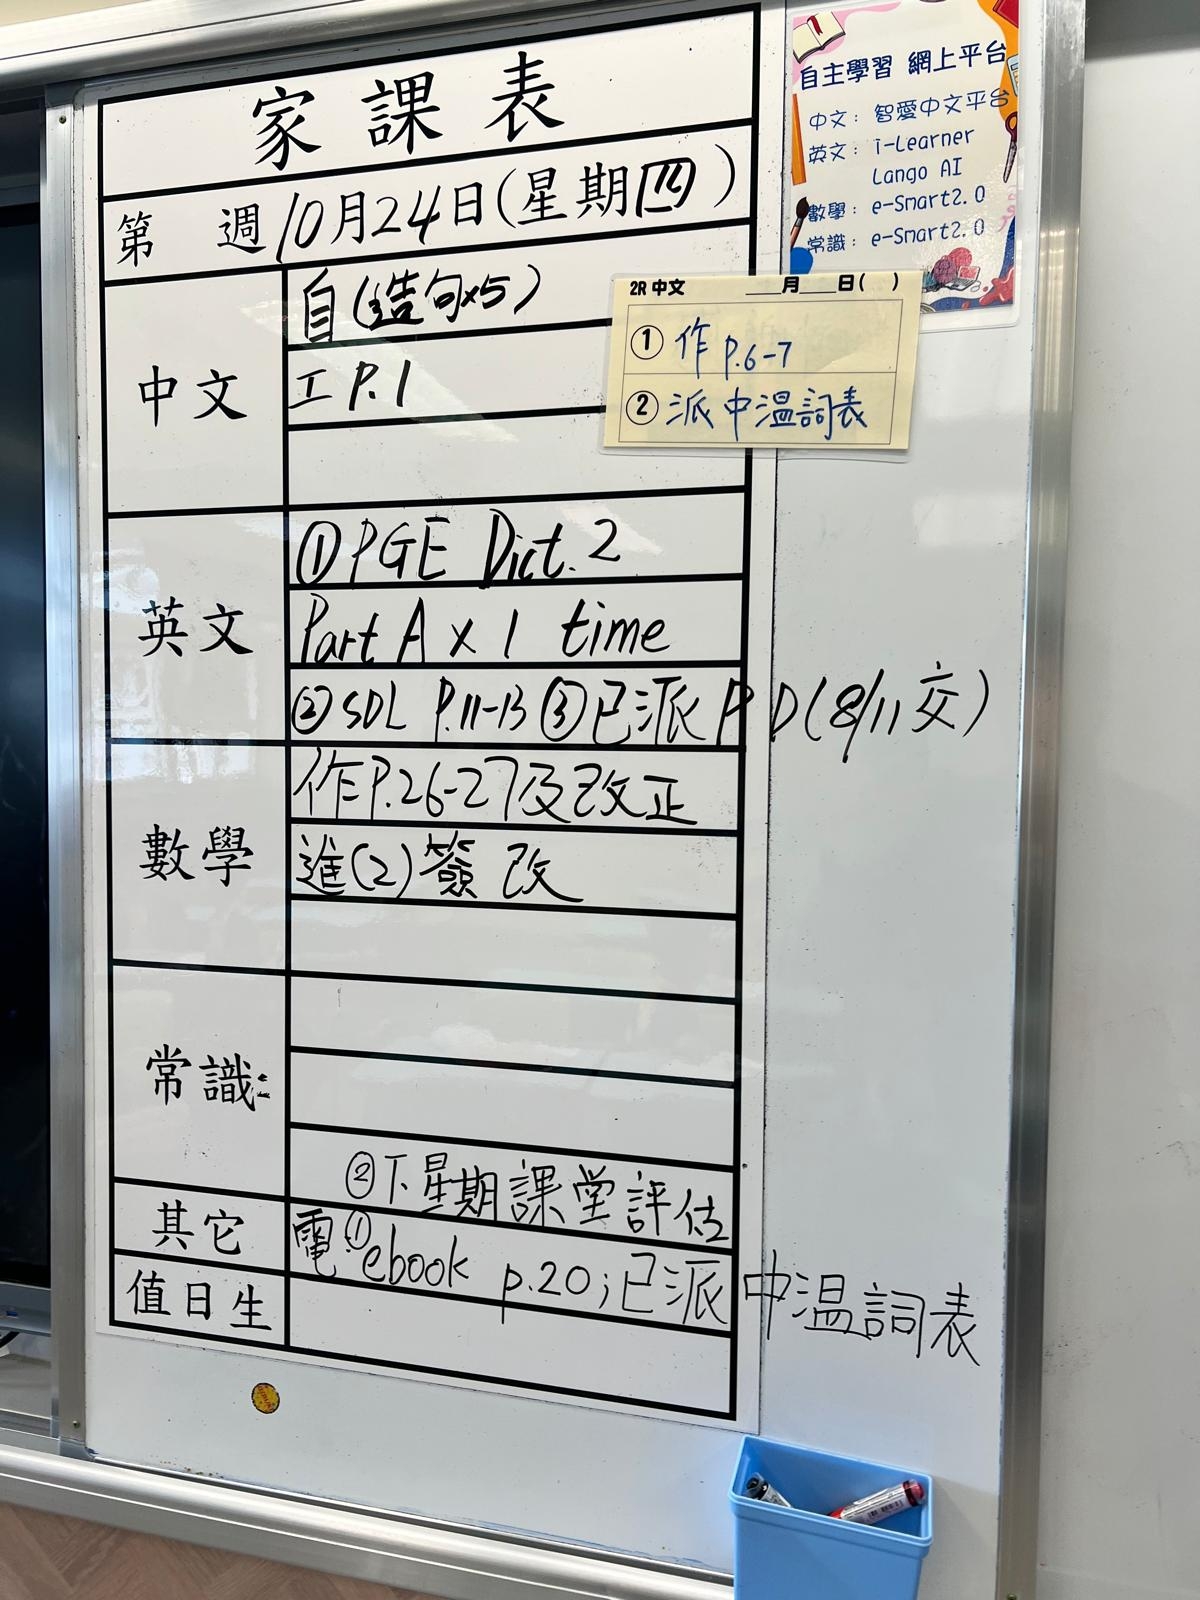 家課表
第 週 10月24日(星期四)
中文
自(造句x5)
工 P.1
英文
①PGE Dict. 2
Part A x 1 time
②SDL P.11-13 ③已派 P.D(8/11交)
數學
作P.26-27及改正
進(2)簽改
常識
②下星期課堂評估
其它
電①ebook p.20;已派中溫詞表
值日生
自主學習 網上平台
中文: 智愛中文平台
英文: i-Learner
Lango AI
數學: e-Smart2.0
常識: e-Smart2.0
2R 中文 ___月___日( )
① 作 P.6-7
② 派中溫詞表